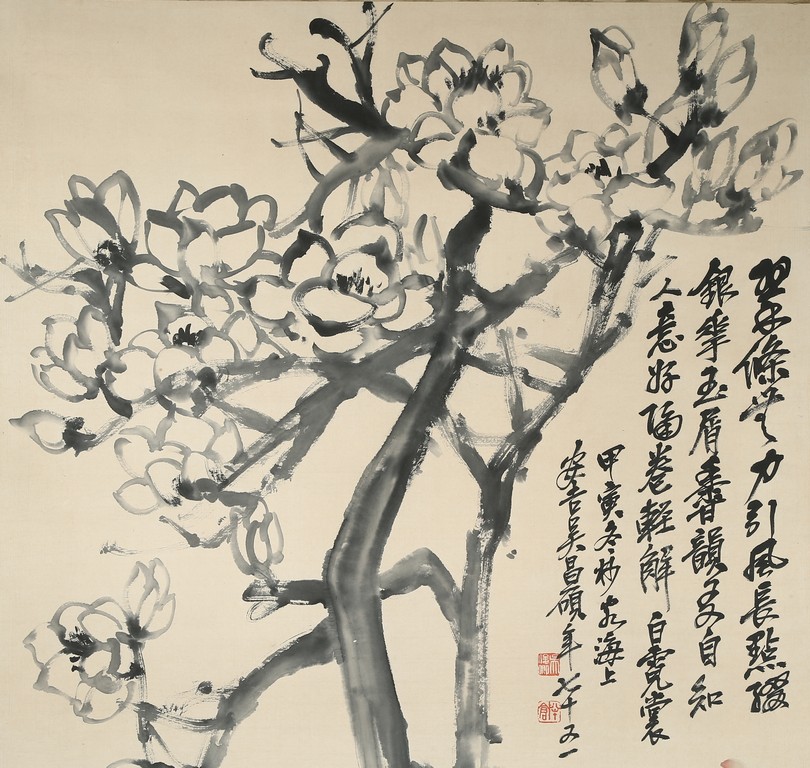 翠條无力引風長點綴
銀華玉屑香韻友自知
人意好隔卷輕解白霓裳
甲寅冬杪客海上
安吉吳昌碩年七十又一